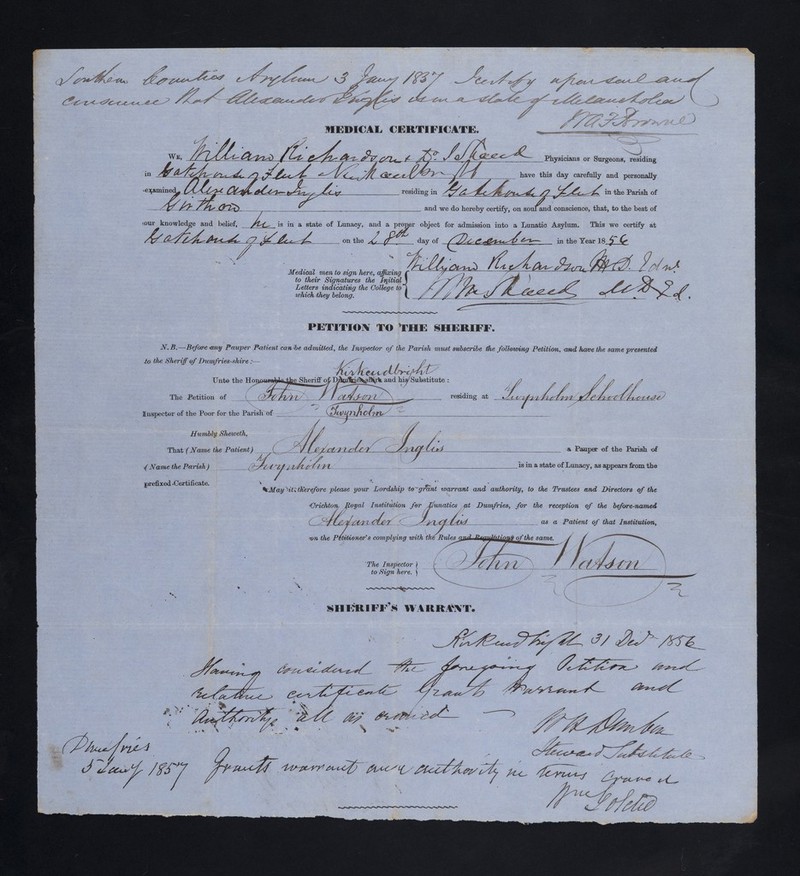 Southern Counties Asylum 3 Jany 1857 I certify upon soul and
conscience that Alexander Inglis is in a state of Melancholia
W A F Browne
MEDICAL CERTIFICATE.
We, William Richardson & Physicians or Surgeons, residing
in Gatehouse of Fleet have this day carefully and personally
examined Alexander Inglis residing in Gatehouse of Fleet in the Parish of
Girthon and we do hereby certify, on soul and conscience, that, to the best of
our knowledge and belief, he is in a state of Lunacy, and a proper object for admission into a Lunatic Asylum. This we certify at
Gatehouse of Fleet on the 28th day of December in the Year 1856
Medical men to sign here, affixing
to their Signatures the Initial
Letters indicating the College to
which they belong.
William Richardson M.D. Edinr.
M.D. Ed.
PETITION TO THE SHERIFF.
N.B.—Before any Pauper Patient can be admitted, the Inspector of the Parish must subscribe the following Petition, and have the same presented
to the Sheriff of Dumfries-shire:—
Kirkcudbright
Unto the Honourable the Sheriff of Dumfries-shire and his Substitute:
The Petition of John Watson residing at Twynholm Schoolhouse
Inspector of the Poor for the Parish of Twynholm
Humbly Sheweth,
That (Name the Patient) Alexander Inglis a Pauper of the Parish of
(Name the Parish) Twynholm is in a state of Lunacy, as appears from the
prefixed Certificate.
May it therefore please your Lordship to grant warrant and authority, to the Trustees and Directors of the
Crichton Royal Institution for Lunatics at Dumfries, for the reception of the before-named
Alexander Inglis as a Patient of that Institution,
on the Petitioner's complying with the Rules and Regulations of the same.
The Inspector
to Sign here.
John Watson
SHERIFF'S WARRANT.
Kirkcudbright 31 Decr 1856
Having considered the foregoing Petition and
relative certificate Grants Warrant and
Authority all as craved
W H Dunbar
Steward Substitute
Dumfries
5 Jany 1857 Grants warrant and authority in terms craved
Wm